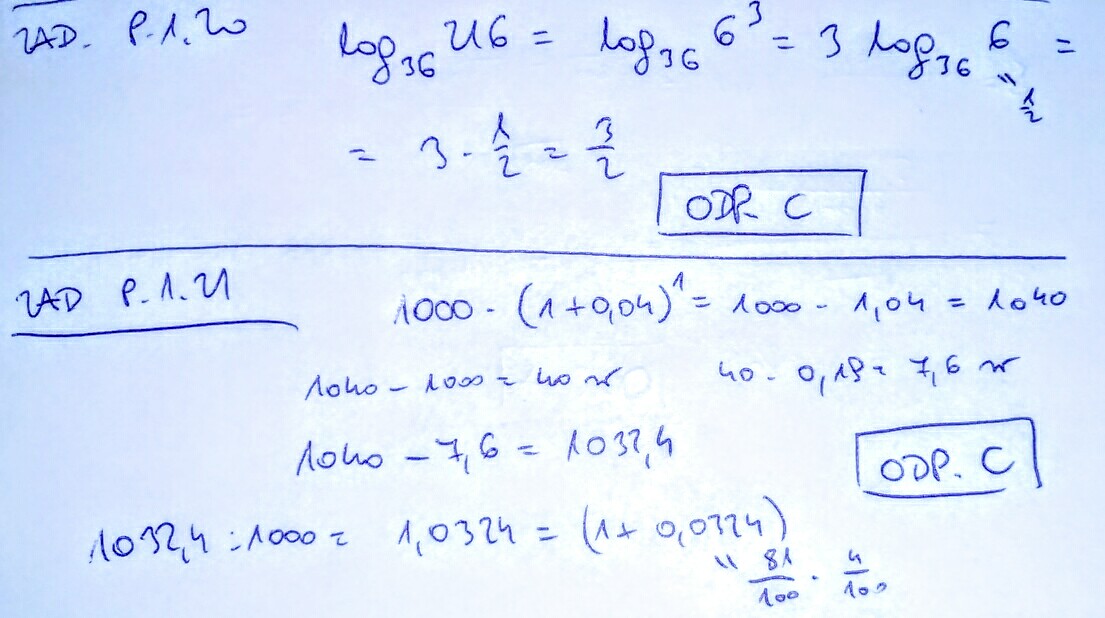 ZAD. P.1.20 log₃₆ 216 = log₃₆ 6³ = 3 log₃₆ 6 =
" 1/2
= 3 · 1/2 = 3/2
ODP. C
ZAD P.1.21 1000 · (1+0,04)¹ = 1000 · 1,04 = 1040
1040 - 1000 = 40 zł 40 · 0,19 = 7,6 zł
1040 - 7,6 = 1032,4
ODP. C
1032,4 : 1000 = 1,0324 = (1 + 0,0324)
" 81/100 · 4/100